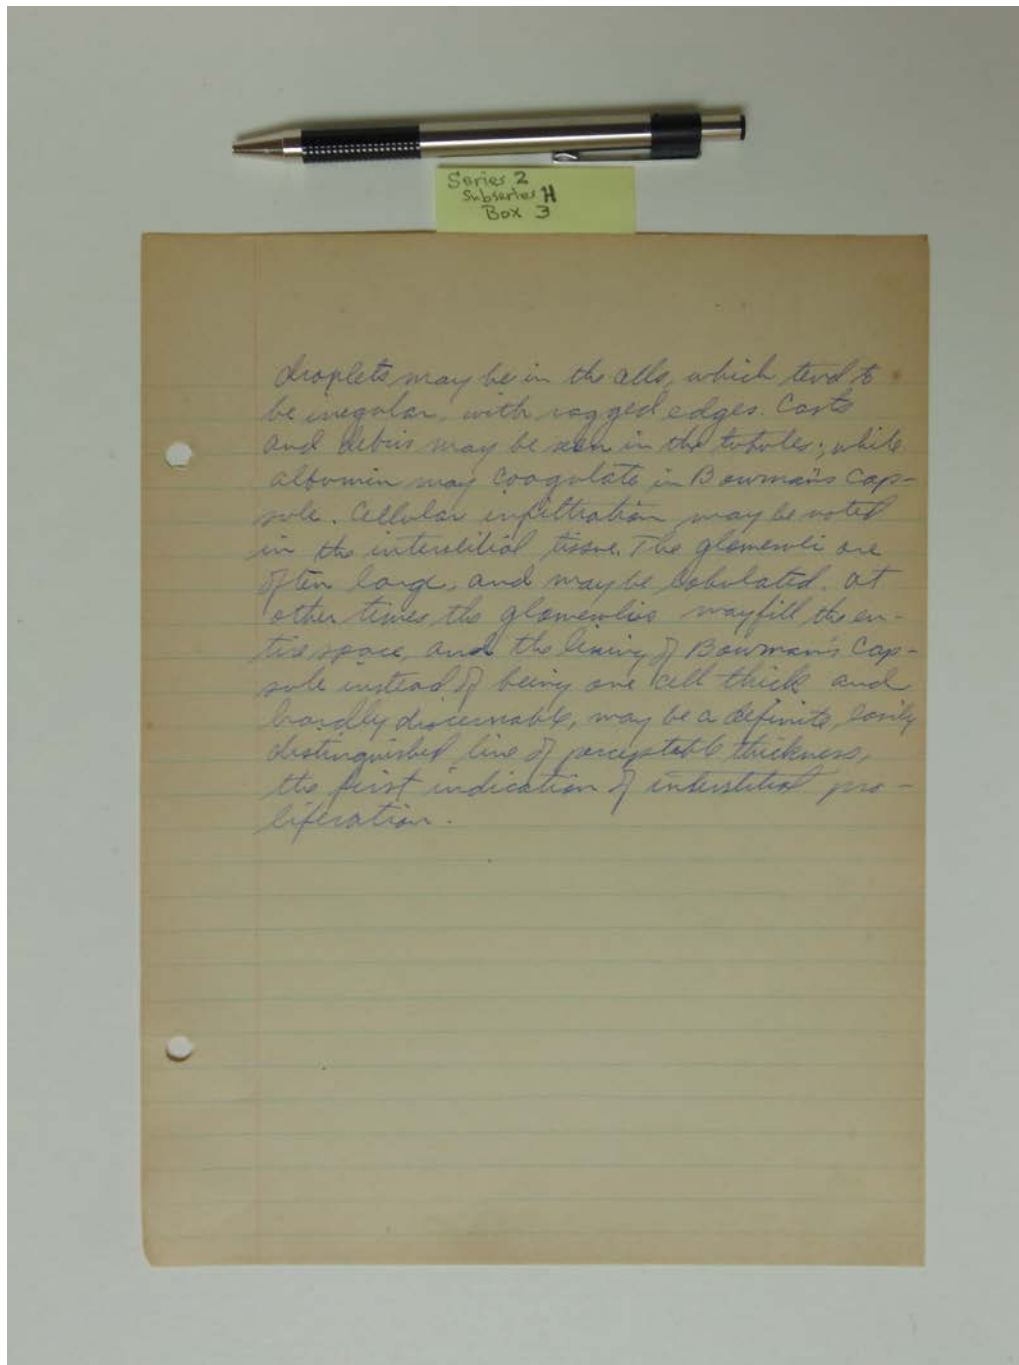 Series 2
Subseries H
Box 3
droplets may be in the cells, which tend to
be irregular, with ragged edges. Casts
and debris may be seen in the tubules; while
albumin may coagulate in Bowman's Cap-
sule. Cellular infiltration may be noted
in the interstitial tissue. The glomeruli are
often large, and may be lobulated. At
other times the glomerulus may fill the en-
tire space, and the lining of Bowman's Cap-
sule instead of being one cell thick and
hardly discernable, may be a definite, easily
distinguished line of perceptable thickness,
the first indication of interstitial pro-
liferation.